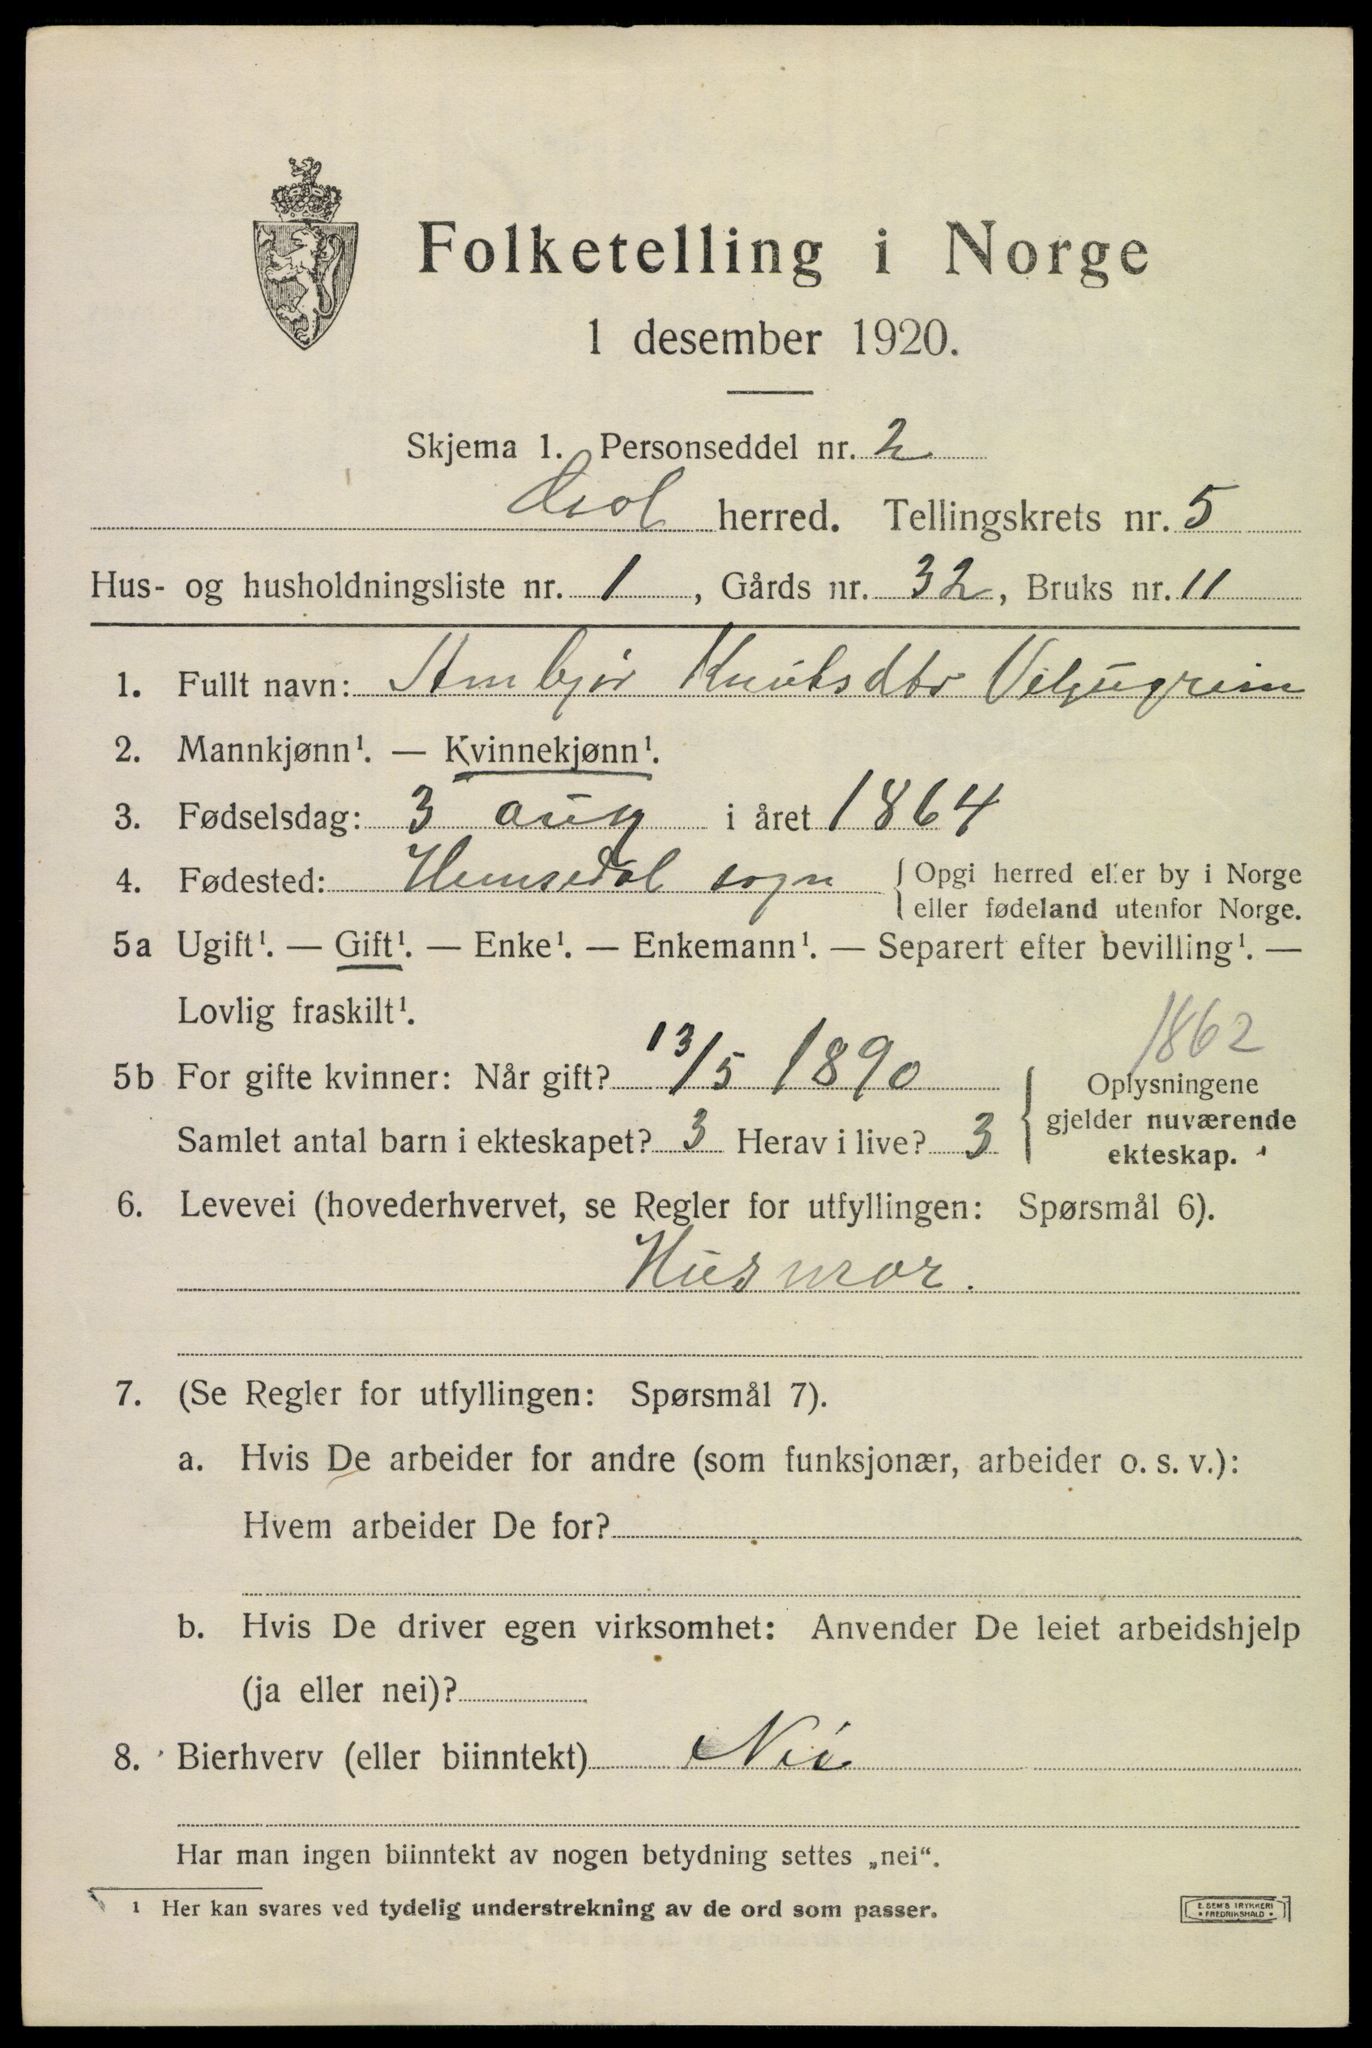 Folketelling i Norge
1 desember 1920.
Skjema 1. Personseddel nr. 2
herred. Tellingskrets nr. 5
Hus- og husholdningsliste nr. 1, Gårds nr. 32, Bruks nr. 11
1. Fullt navn: Ambjør Knutsdtr
2. Mannkjønn¹. — Kvinnekjønn¹.
3. Fødselsdag: 3 aug i året 1864
4. Fødested: Hemsedal sogn { Opgi herred eller by i Norge
eller fødeland utenfor Norge.
5a Ugift¹. — Gift¹. — Enke¹. — Enkemann¹. — Separert efter bevilling¹. —
Lovlig fraskilt¹.
1862
5b For gifte kvinner: Når gift? 13/5 1890
Samlet antal barn i ekteskapet? 3 Herav i live? 3
{ Oplysningene
gjelder nuværende
ekteskap.
6. Levevei (hovederhvervet, se Regler for utfyllingen: Spørsmål 6).
Husmor.
7. (Se Regler for utfyllingen: Spørsmål 7).
a. Hvis De arbeider for andre (som funksjonær, arbeider o. s. v.):
Hvem arbeider De for?
b. Hvis De driver egen virksomhet: Anvender De leiet arbeidshjelp
(ja eller nei)?
8. Bierhverv (eller biinntekt) Nei
Har man ingen biinntekt av nogen betydning settes „nei“.
¹ Her kan svares ved tydelig understrekning av de ord som passer.
E. SEM'S TRYKKERI
* FREDRIKSHALD *